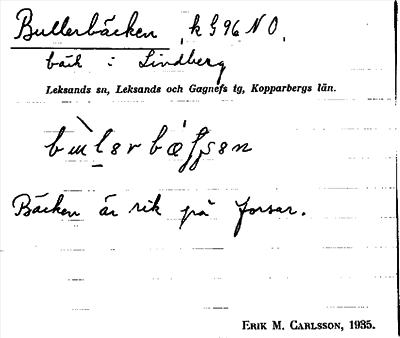 Bullerbäcken, k G 96 NO,
bäck i Lindberg
Leksands sn, Leksands och Gagnefs tg, Kopparbergs län.
Bäcken är rik på forsar.
ERIK M. CARLSSON, 1935.